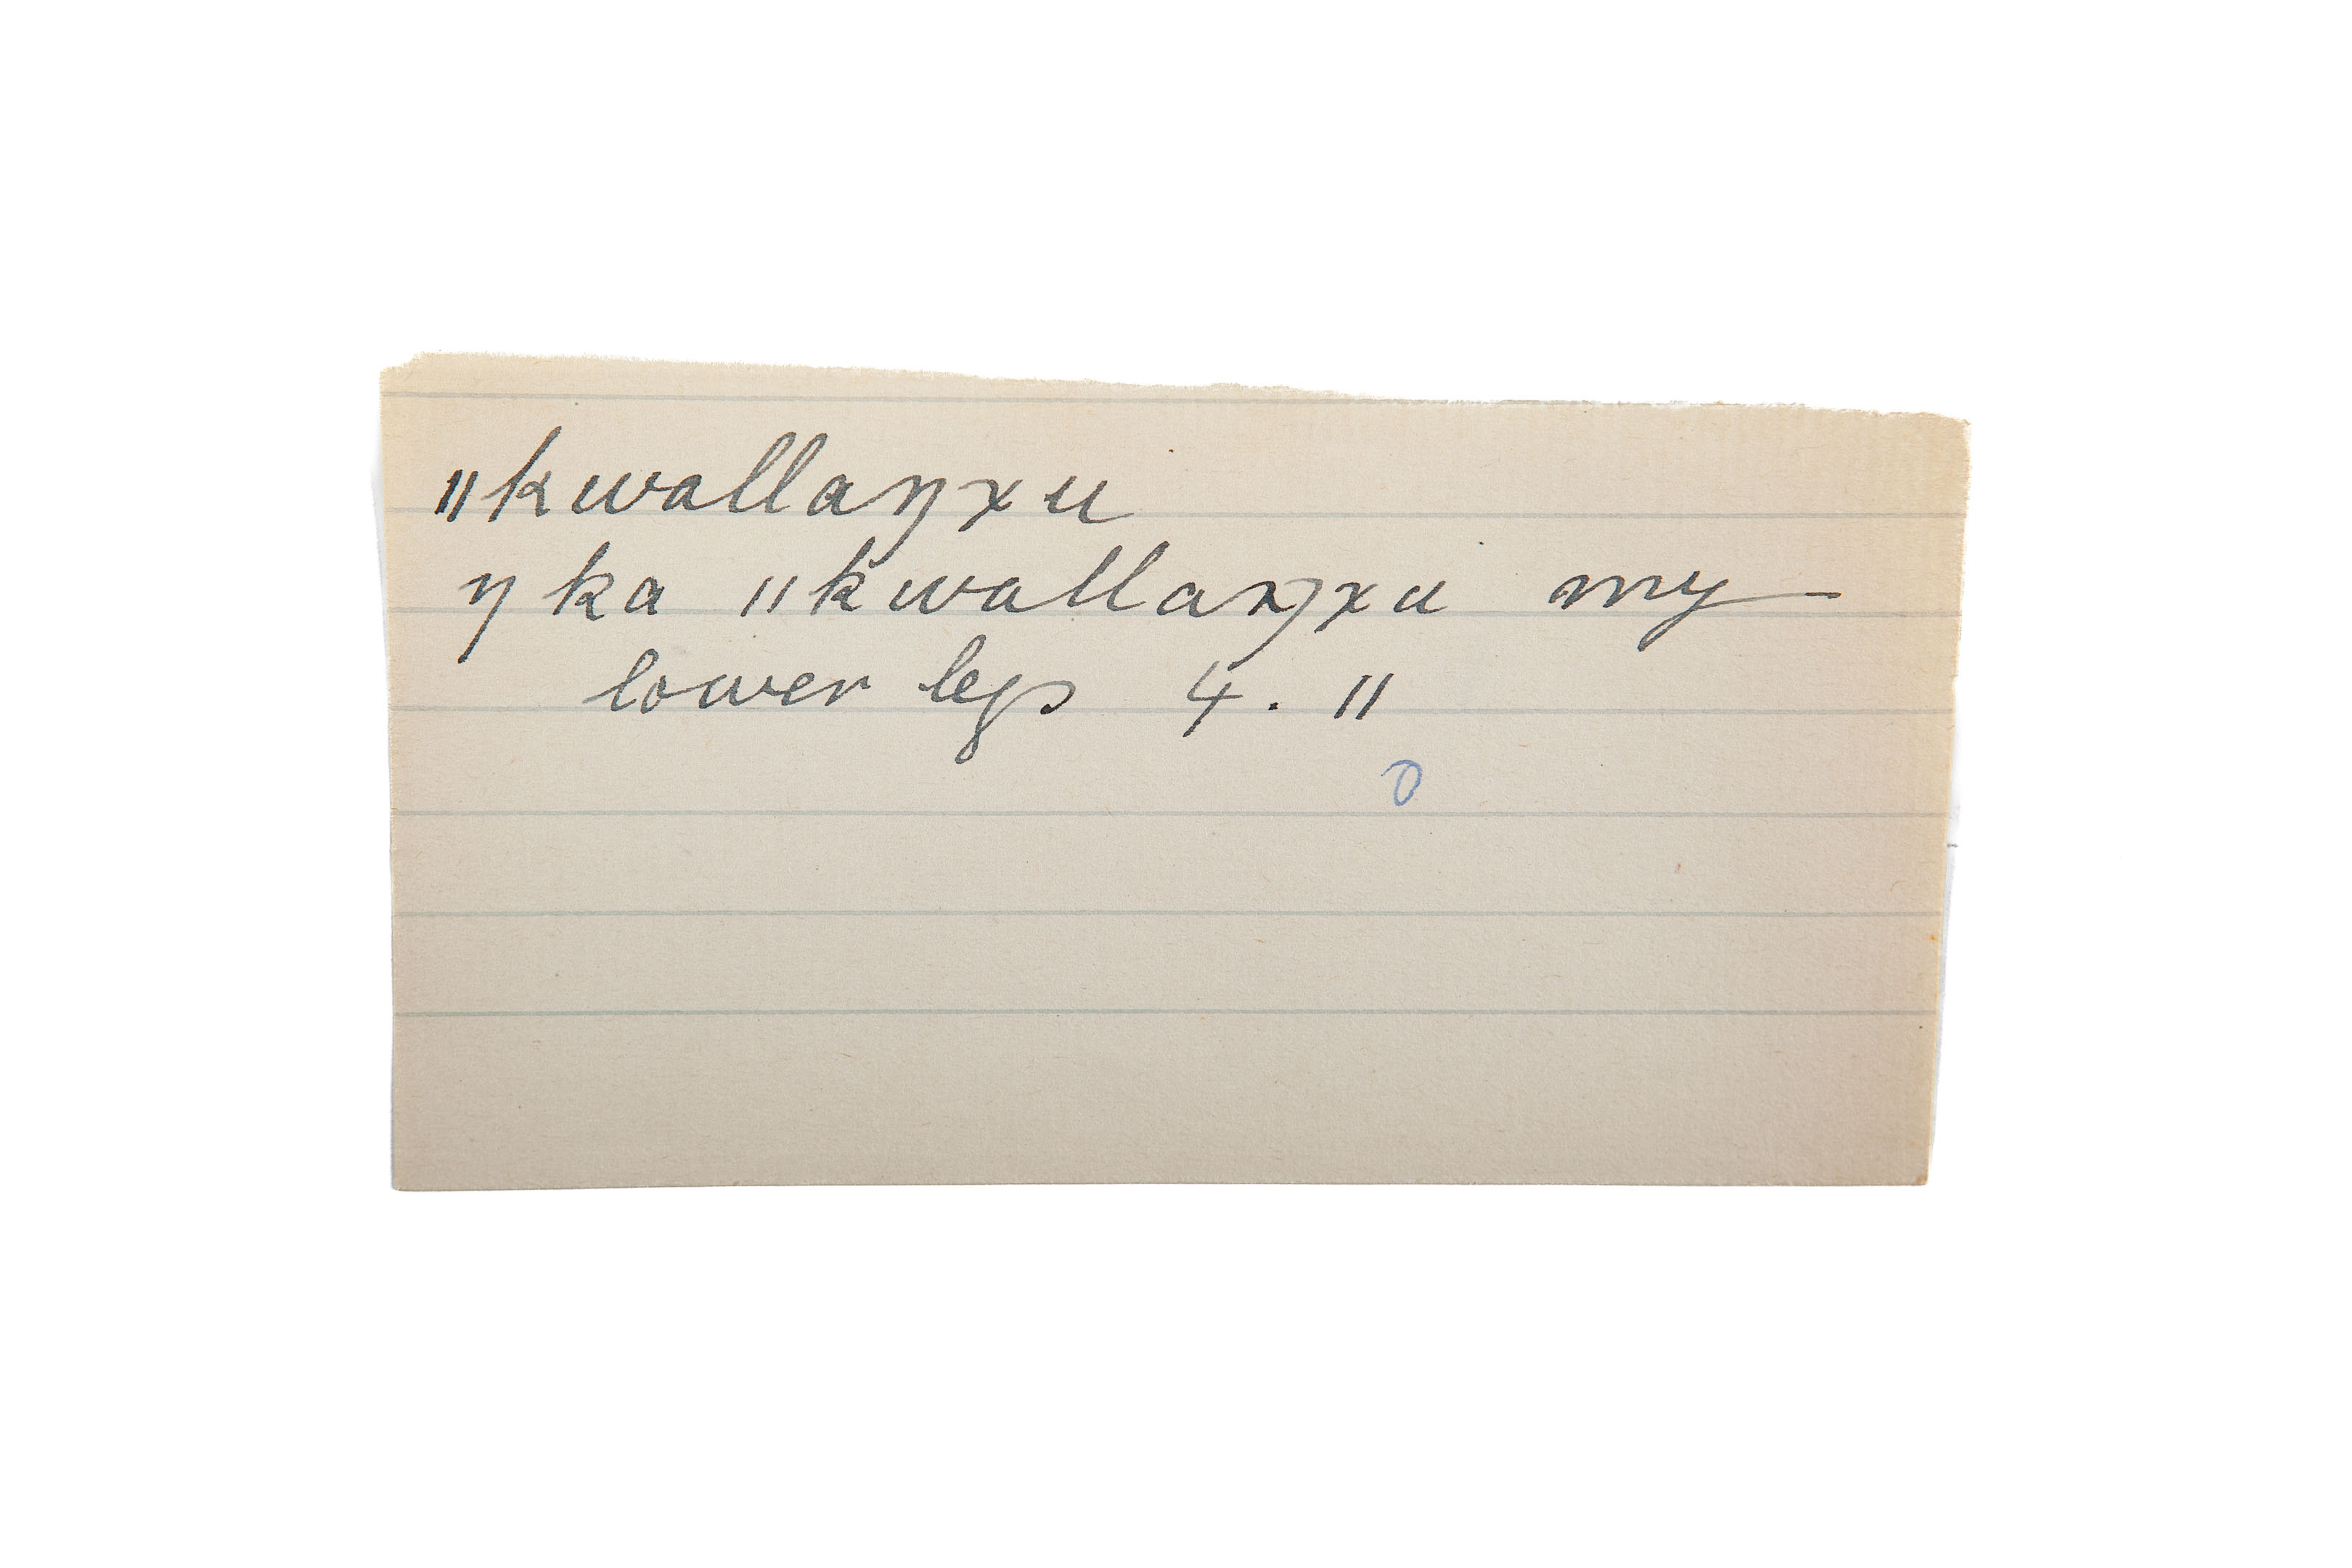 ǁkwallaŋxu
ŋ ka ǁkwallaŋxu my
lower legs 4. ǁ
0